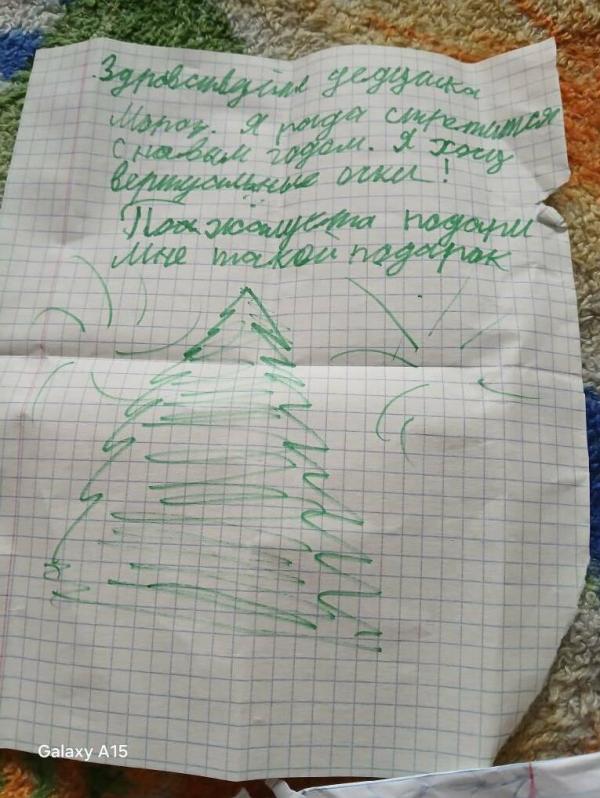 Здравствуйте дедушка
Мороз. Я рада стретится
с новым годом. Я хочу
вертуальные очки!
Поажалуста подари
мне такой подарок
Galaxy A15